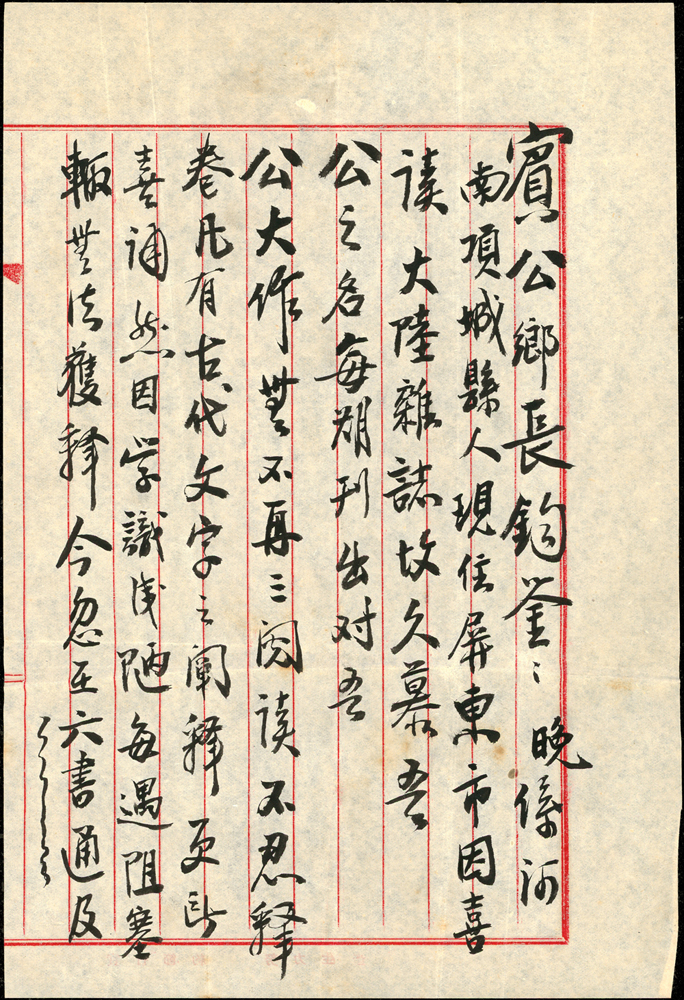 賓公鄉長鈞鉴：晚係河
南項城縣人現住屏東市因喜
读大陸雜誌故久慕吾
公之名每期刊出对吾
公大作無不再三阅读不忍释
卷凡有古代文字之阐释更所
喜誦然因学識浅陋每遇阻塞
輒無法獲释今忽在六書通及